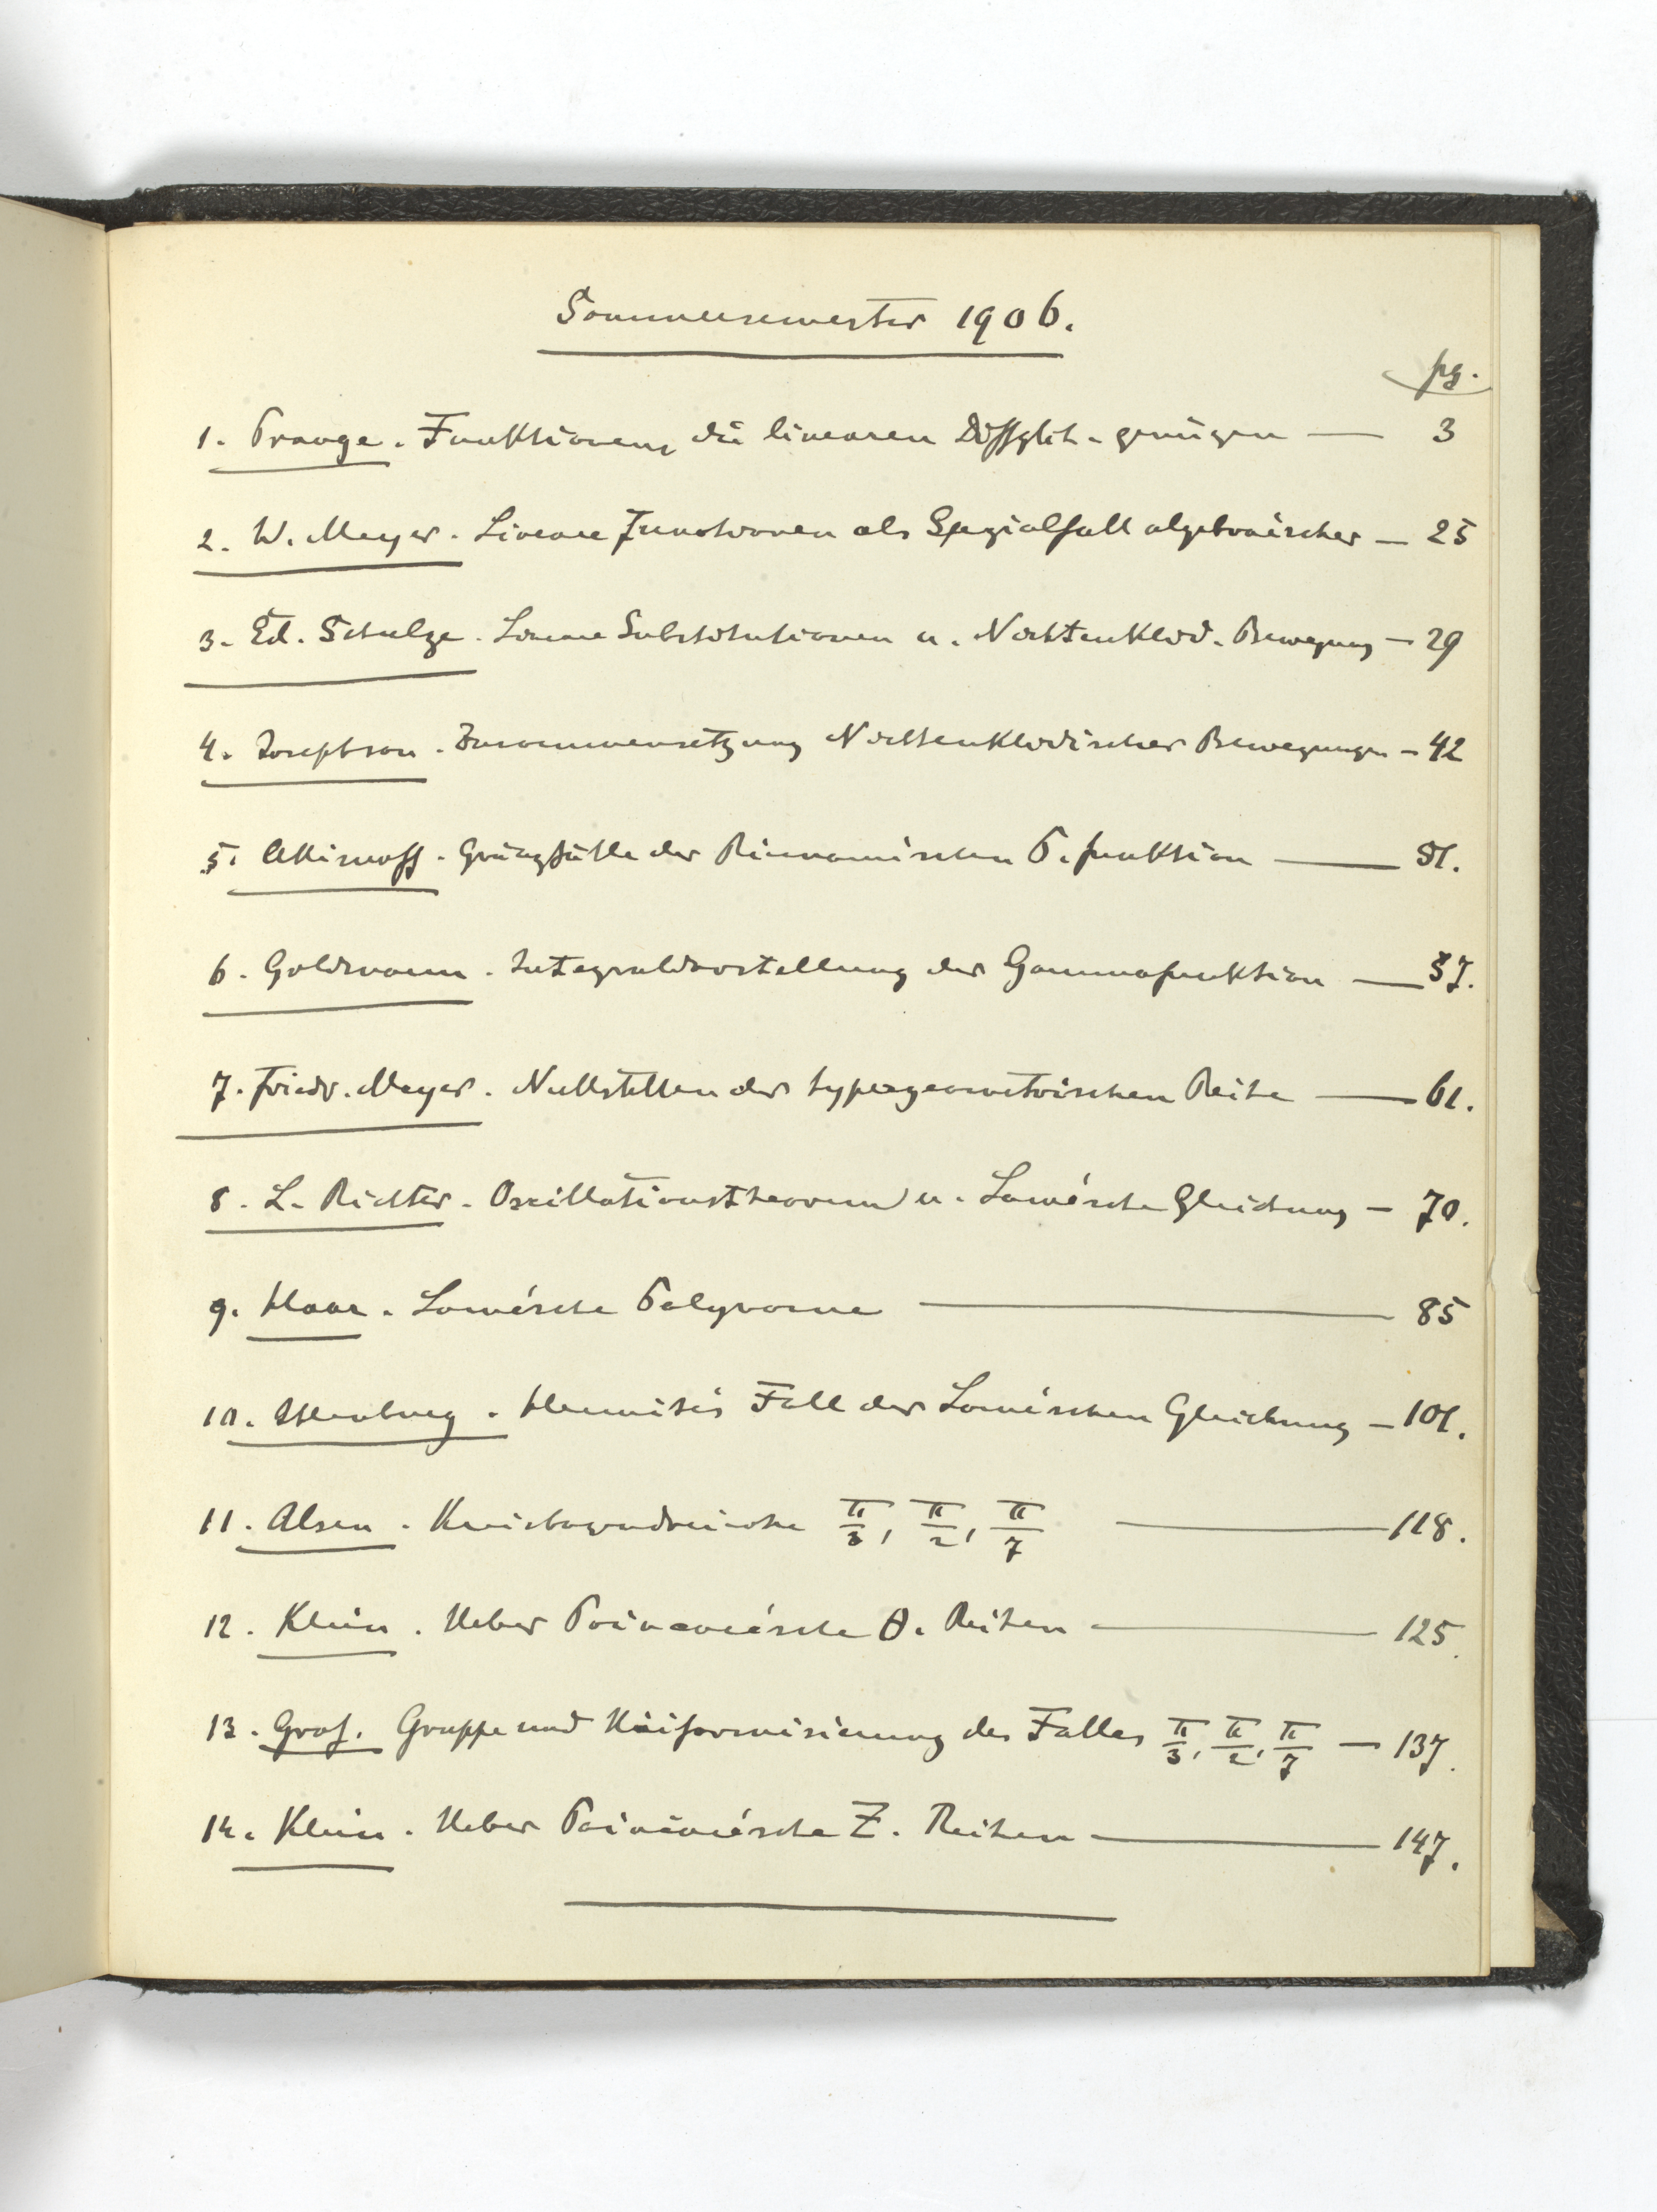 Sommersemester 1906.
pg.
1. Prange. Funktionen, die linearen Diffglch. genügen — 3
2. W. Meyer. Lineare Funktionen als Spezialfall algebraischer — 25
3. Ed. Schulze. Lineare Substitutionen u. Nichteuklid. Bewegung — 29
4. Josephson. Zusammensetzung Nichteuklidischer Bewegungen — 42
5. Grenzfälle der Riemannischen P. funktion — 51.
6. Goldmann. Integraldarstellung der Gammafunktion — 57.
7. Friedr. Meyer. Nullstellen der hypergeometrischen Reihe — 61.
8. L. Richter. Oszillationstheorem u. Lamésche Gleichung — 70.
9. Haar. Lamésche Polynome — 85
10. Hermites Fall der Laméschen Gleichung — 101.
11. Alsen. Kreisbogendreiecke π/3, π/2, π/7 — 118.
12. Klein. Ueber Poincarésche θ. Reihen — 125.
13. Graf. Gruppe und Uniformisierung des Falles π/3, π/2, π/7 — 137.
14. Klein. Ueber Poincarésche Z. Reihen — 147.